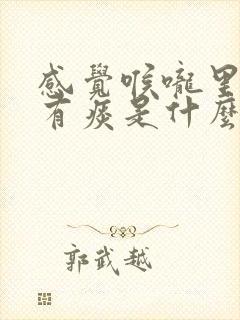 感覺喉嚨里
有痰是什麼
郭武越